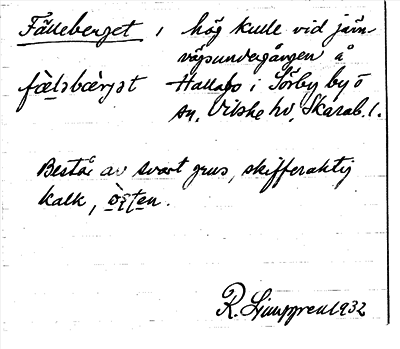 Fälleberget, hög kulle vid järn-
vägsundergången å
fæ̀lsbærjət Hallabo i Sörby by ö
sn, Vilske hd, Skarab. l.
Består av svart grus, skifferaktig
kalk, ò̤s̤te̤n.
R. Ljunggren 1932